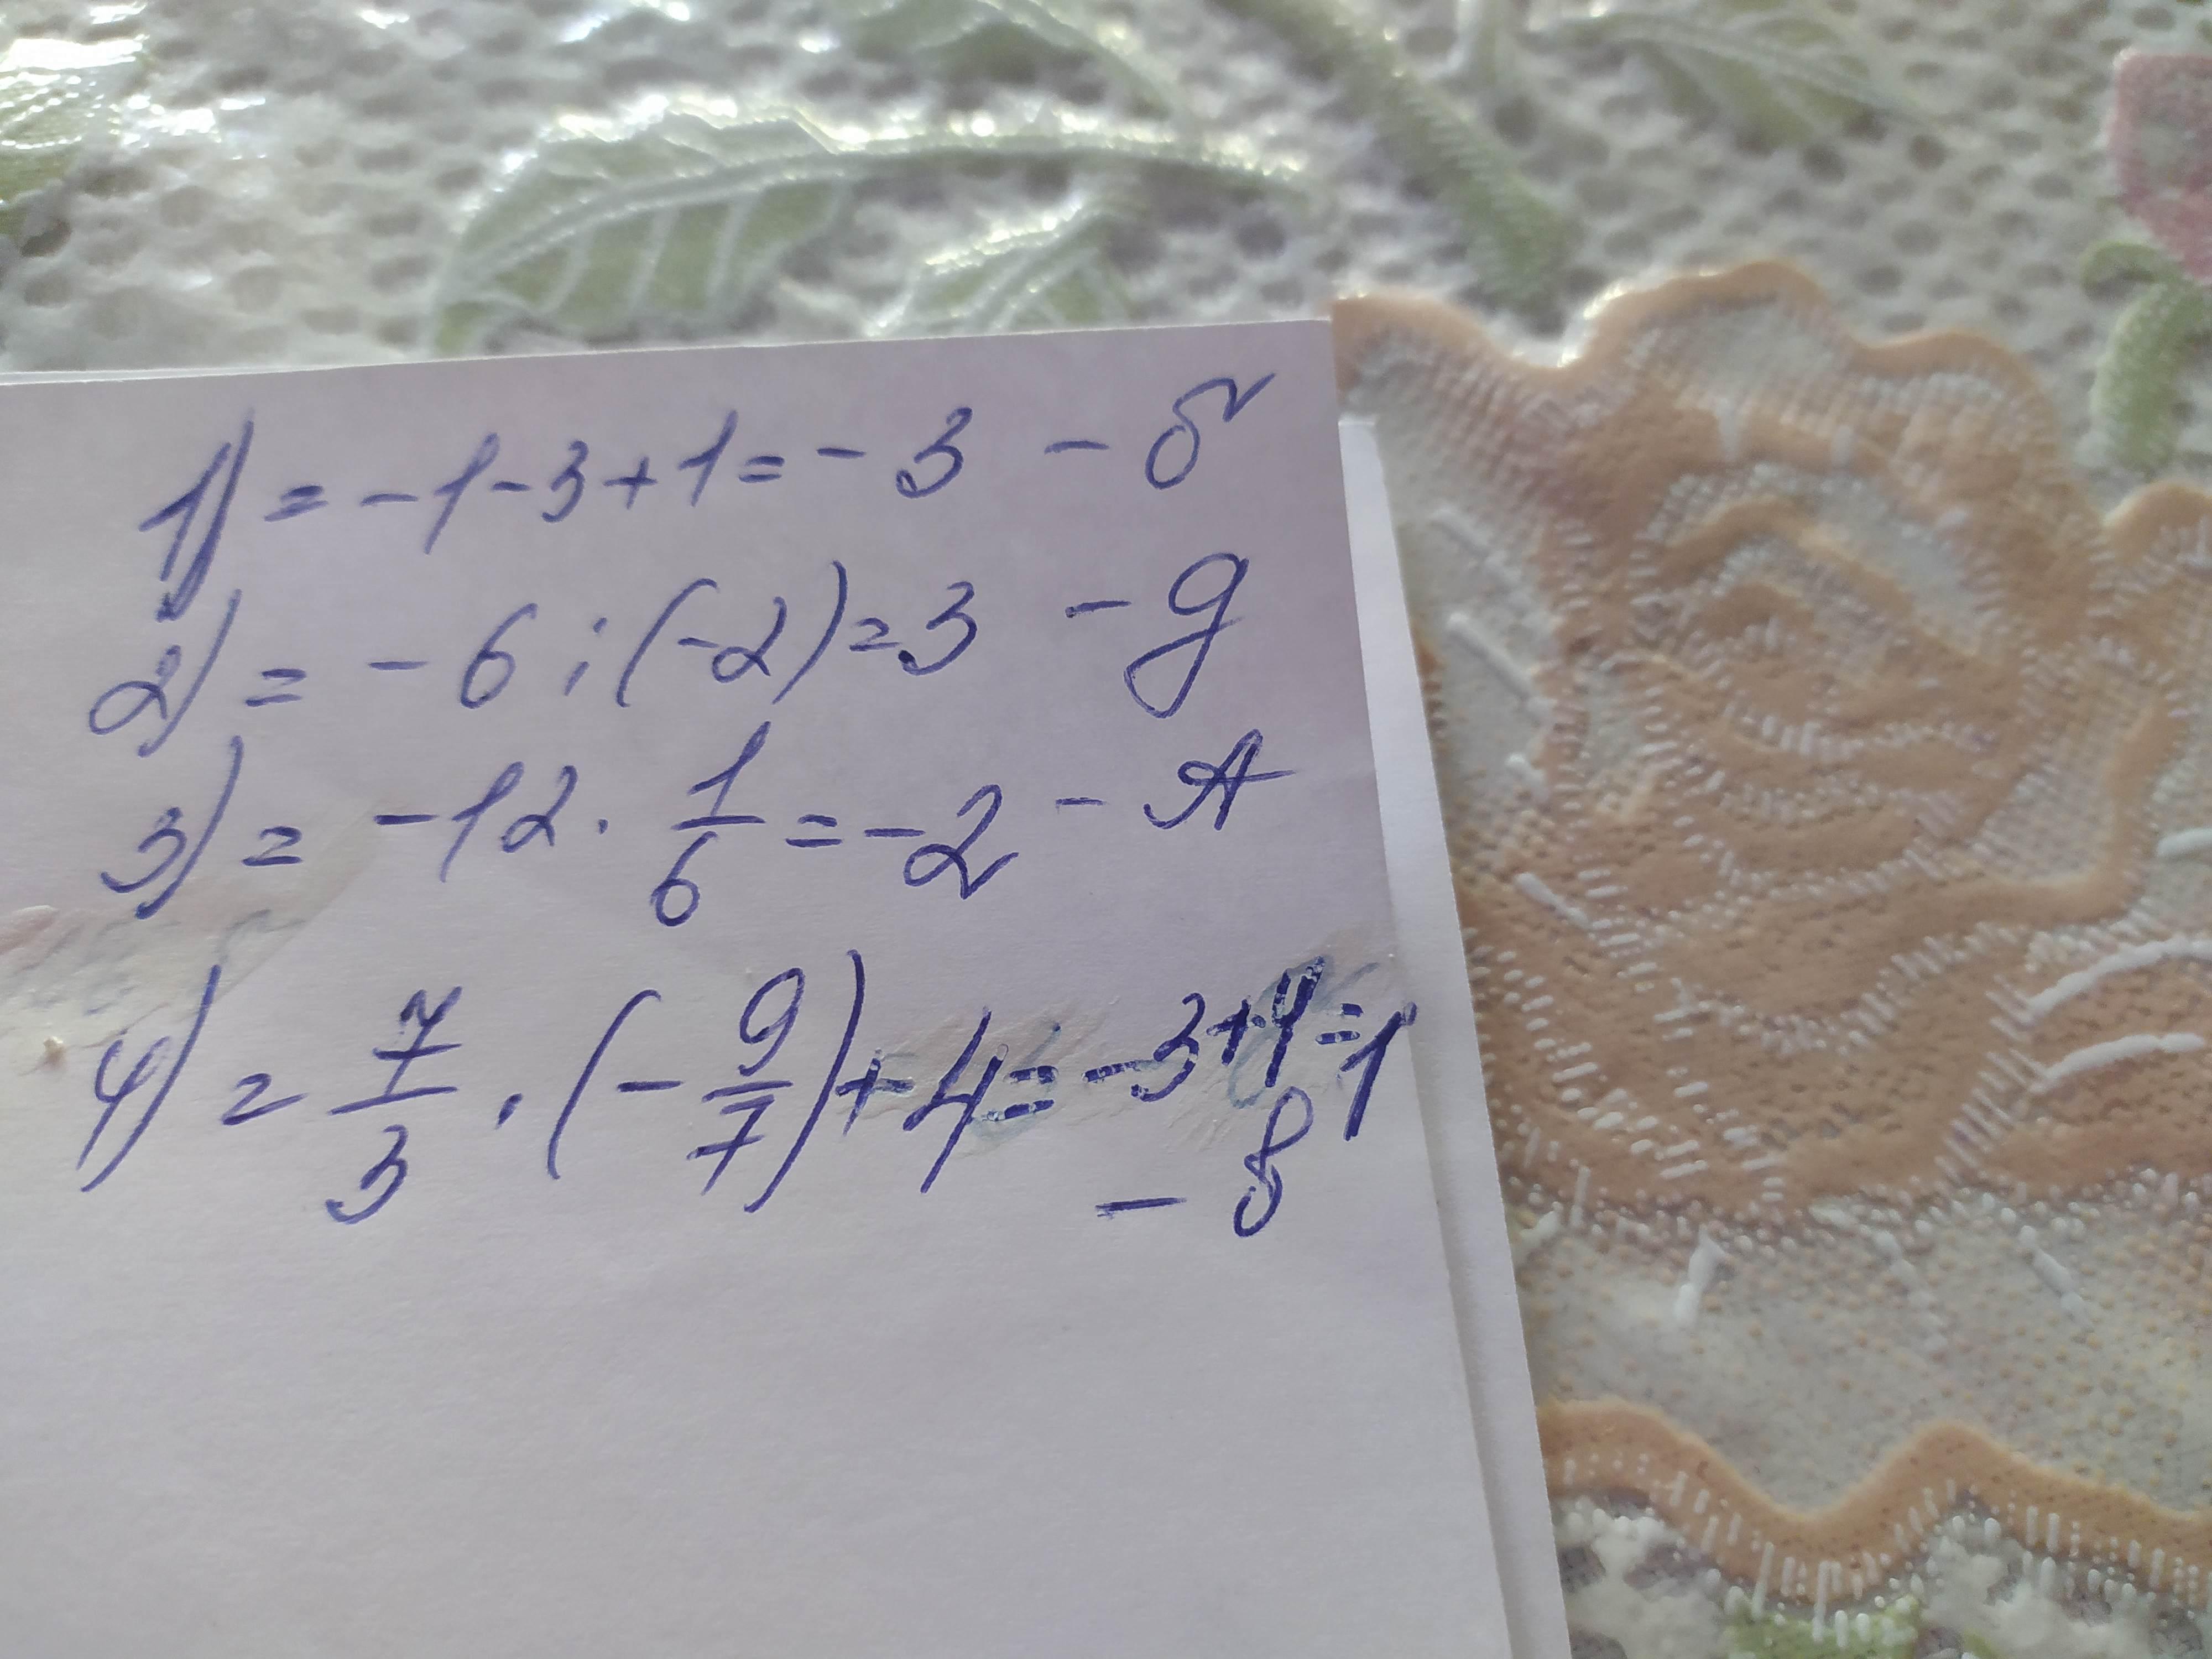 1) = -1-3+1=-3 - б
2) = -6:(-2)=3 - д
3) = -12 · 1/6 = -2 - А
4) = 7/3 · (-9/7)+4=-3+4=1
- в